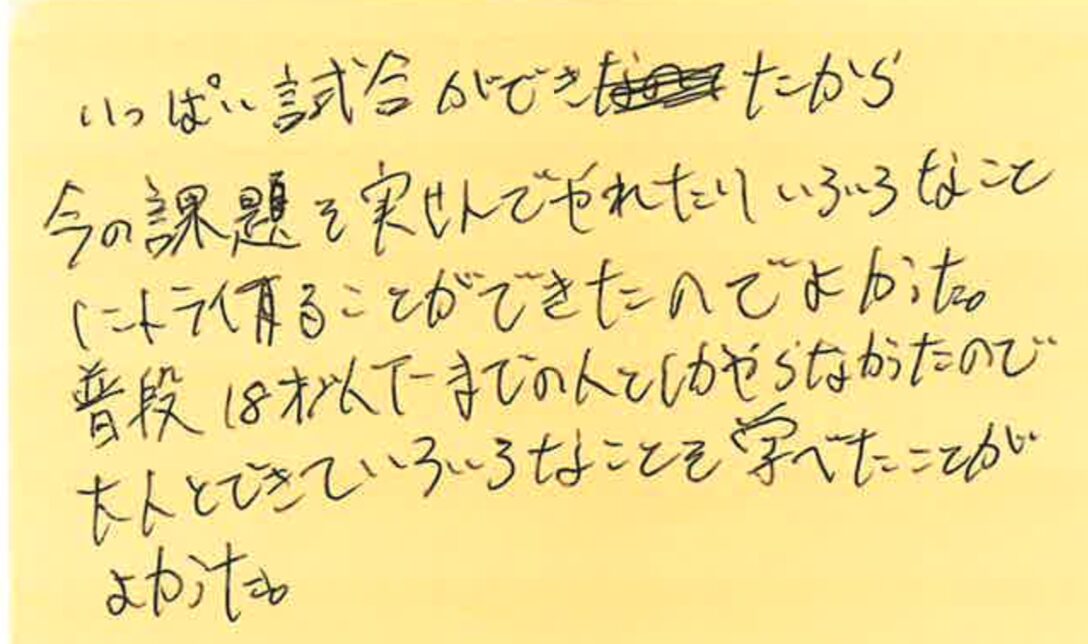 いっぱい試合ができたから
今の課題を実せんでやれたりいろいろなこと
にトライすることができたのでよかった。
普段18才以下までの人としかやらなかったので
大人とできていろいろなことを学べたことが
よかった。